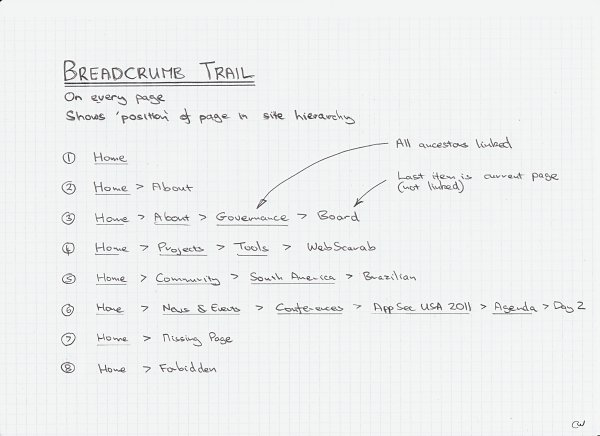 BREADCRUMB TRAIL
On every page
Shows 'position' of page in site hierarchy
All ancestors linked
Last item is current page
(not linked)
① Home
② Home > About
③ Home > About > Governance > Board
④ Home > Projects > Tools > WebScarab
⑤ Home > Community > South America > Brazilian
⑥ Home > News & Events > Conferences > AppSec USA 2011 > Agenda > Day 2
⑦ Home > Missing Page
⑧ Home > Forbidden
CW